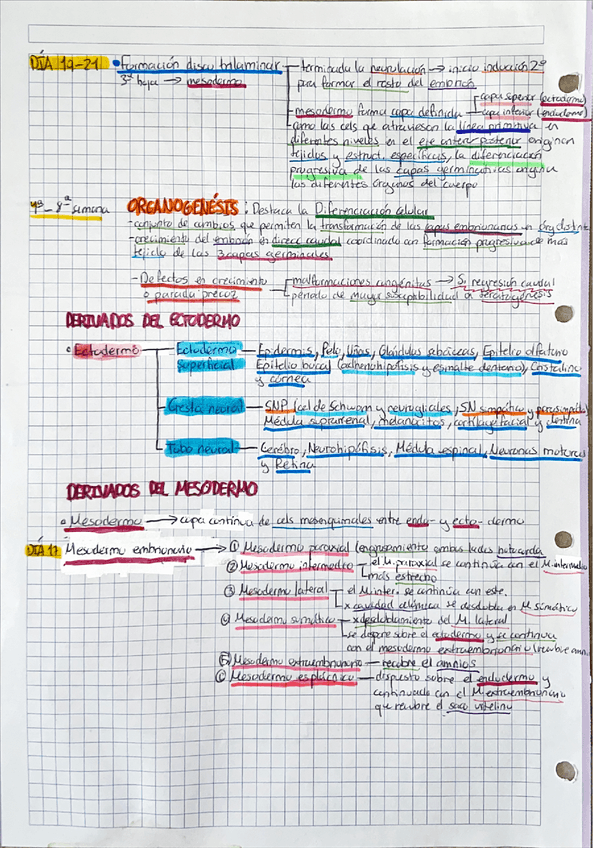 DÍA 19-21 • Formación disco trilaminar — terminada la neurulación → inicio inducción 2º
3ª hoja → mesodermo
para formar el resto del embrión
- mesodermo forma capa definida
capa superior (ectodermo)
capa inferior (endodermo)
- como las cels que atraviesan la línea primitiva en
diferentes niveles en el eje anteroposterior originan
tejidos y estruct. específicas, la diferenciación
progresiva de las capas germinativas origina
los diferentes órganos del cuerpo
4ª-8ª semana
ORGANOGENÉSIS: Destaca la Diferenciación celular
- conjunto de cambios que permiten la transformación de las capas embrionarias en órg distint
- crecimiento del embrión en direcc caudal coordinado con formación progresiva de más
tejido de las 3 capas germinales.
- Defectos en crecimiento
o parada precoz
malformaciones congénitas → S. regresión caudal
periodo de mayor susceptibilidad a teratogénesis
DERIVADOS DEL ECTODERMO
• Ectodermo — Ectodermo superficial — Epidermis, Pelo, Uñas, Glándulas sebáceas, Epitelio olfatorio
Epitelio bucal (adenohipófisis y esmalte dentario), Cristalino
y córnea
Cresta neural — SNP (cel de Schwann y neurogliales, SN simpático y parasimpático)
Médula suprarrenal, melanocitos, cartílago facial y dentina
Tubo neural — Cerebro, Neurohipófisis, Médula espinal, Neuronas motoras
y Retina
DERIVADOS DEL MESODERMO
• Mesodermo → capa continua de cels mesenquimales entre endo- y ecto- dermo
DÍA 17 Mesodermo embrionario → ① Mesodermo paraxial (engrosamiento ambos lados notocorda
② Mesodermo intermedio — el M. paraxial se continúa con el M. intermedio
más estrecho
③ Mesodermo lateral — el M inter. se continúa con este.
x cavidad celómica se desdobla en M. somático
④ Mesodermo somático — x desdoblamiento del M. lateral
se dispone sobre el ectodermo y se continúa
con el mesodermo extraembrionario (recubre amn.
⑤ Mesodermo extraembrionario — recubre el amnios
⑥ Mesodermo esplácnico — dispuesto sobre el endodermo y
continuado con el M extraembrionario
que recubre el saco vitelino